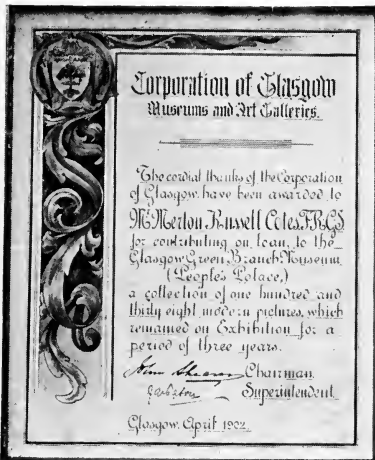 Corporation of Glasgow
Museums and Art Galleries.
The cordial thanks of the Corporation
of Glasgow have been awarded to
Mr. Merton Russell Cotes, F.R.G.S.
for contributing on loan, to the
Glasgow Green Branch Museum
(People's Palace,)
a collection of one hundred and
thirty eight modern pictures, which
remained on Exhibition for a
period of three years.
John Shearer Chairman.
Superintendent
Glasgow, April 1902.